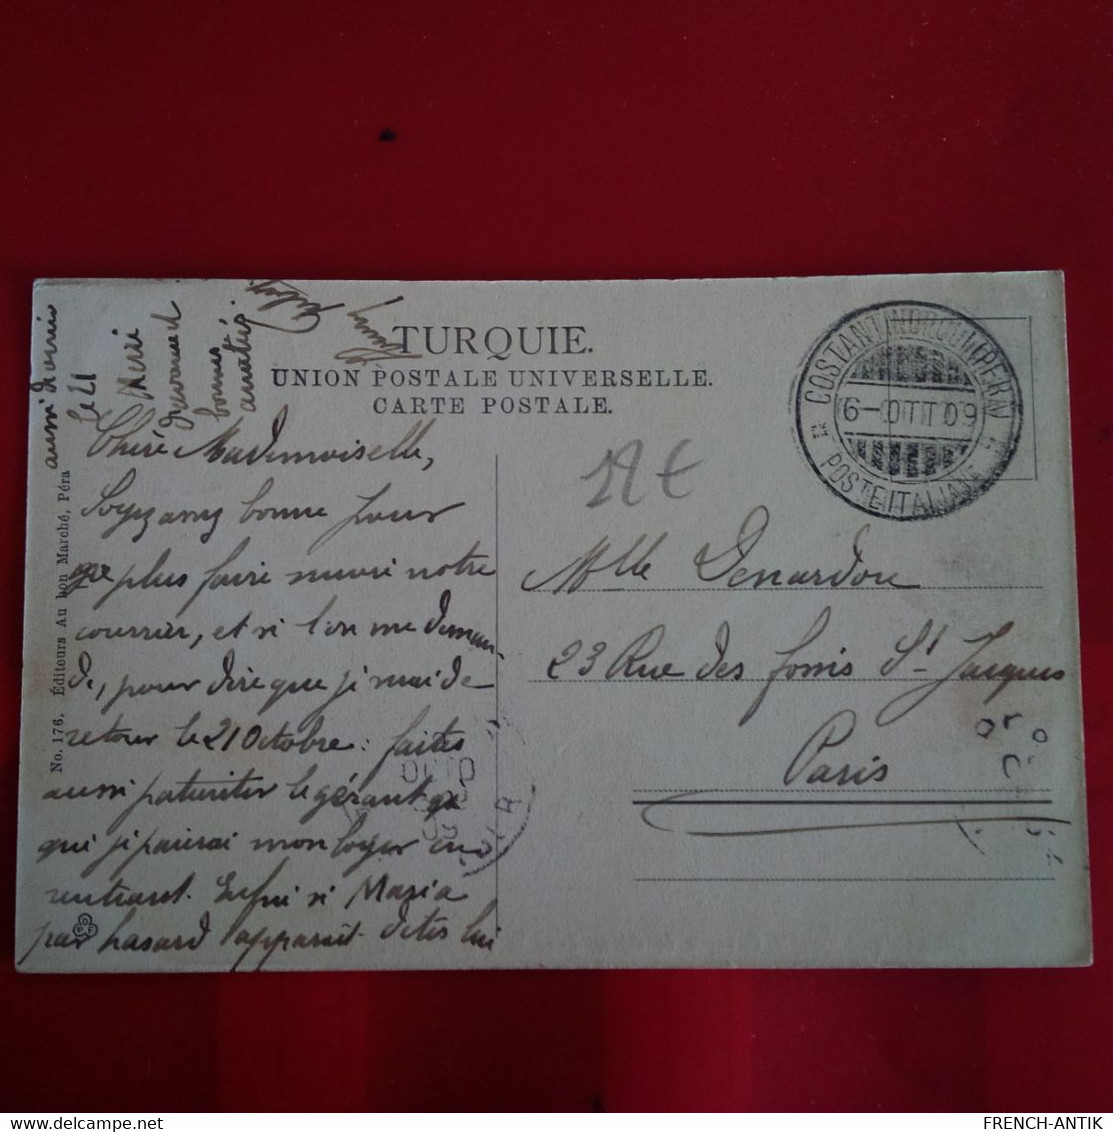 TURQUIE.
UNION POSTALE UNIVERSELLE.
CARTE POSTALE.
POSTE ITALIANE
6- OTT 09
No. 176. Éditeurs Au bon Marché, Péra
Chère Mademoiselle,
Soyez bonne pour
plus faire suivre notre
courrier, et si l'on me deman-
de, pour dire que j
retour le 21 Octobre : faites
aussi le gérant
qui j paierai mon loyer en
rentrant. Enfin si Maria
par hasard apparait dites lui
aussi
le 21
Merci
bonnes
amitiés
Mlle Denardou
23 Rue des fossés St Jacques
Paris
FRENCH-ANTIK